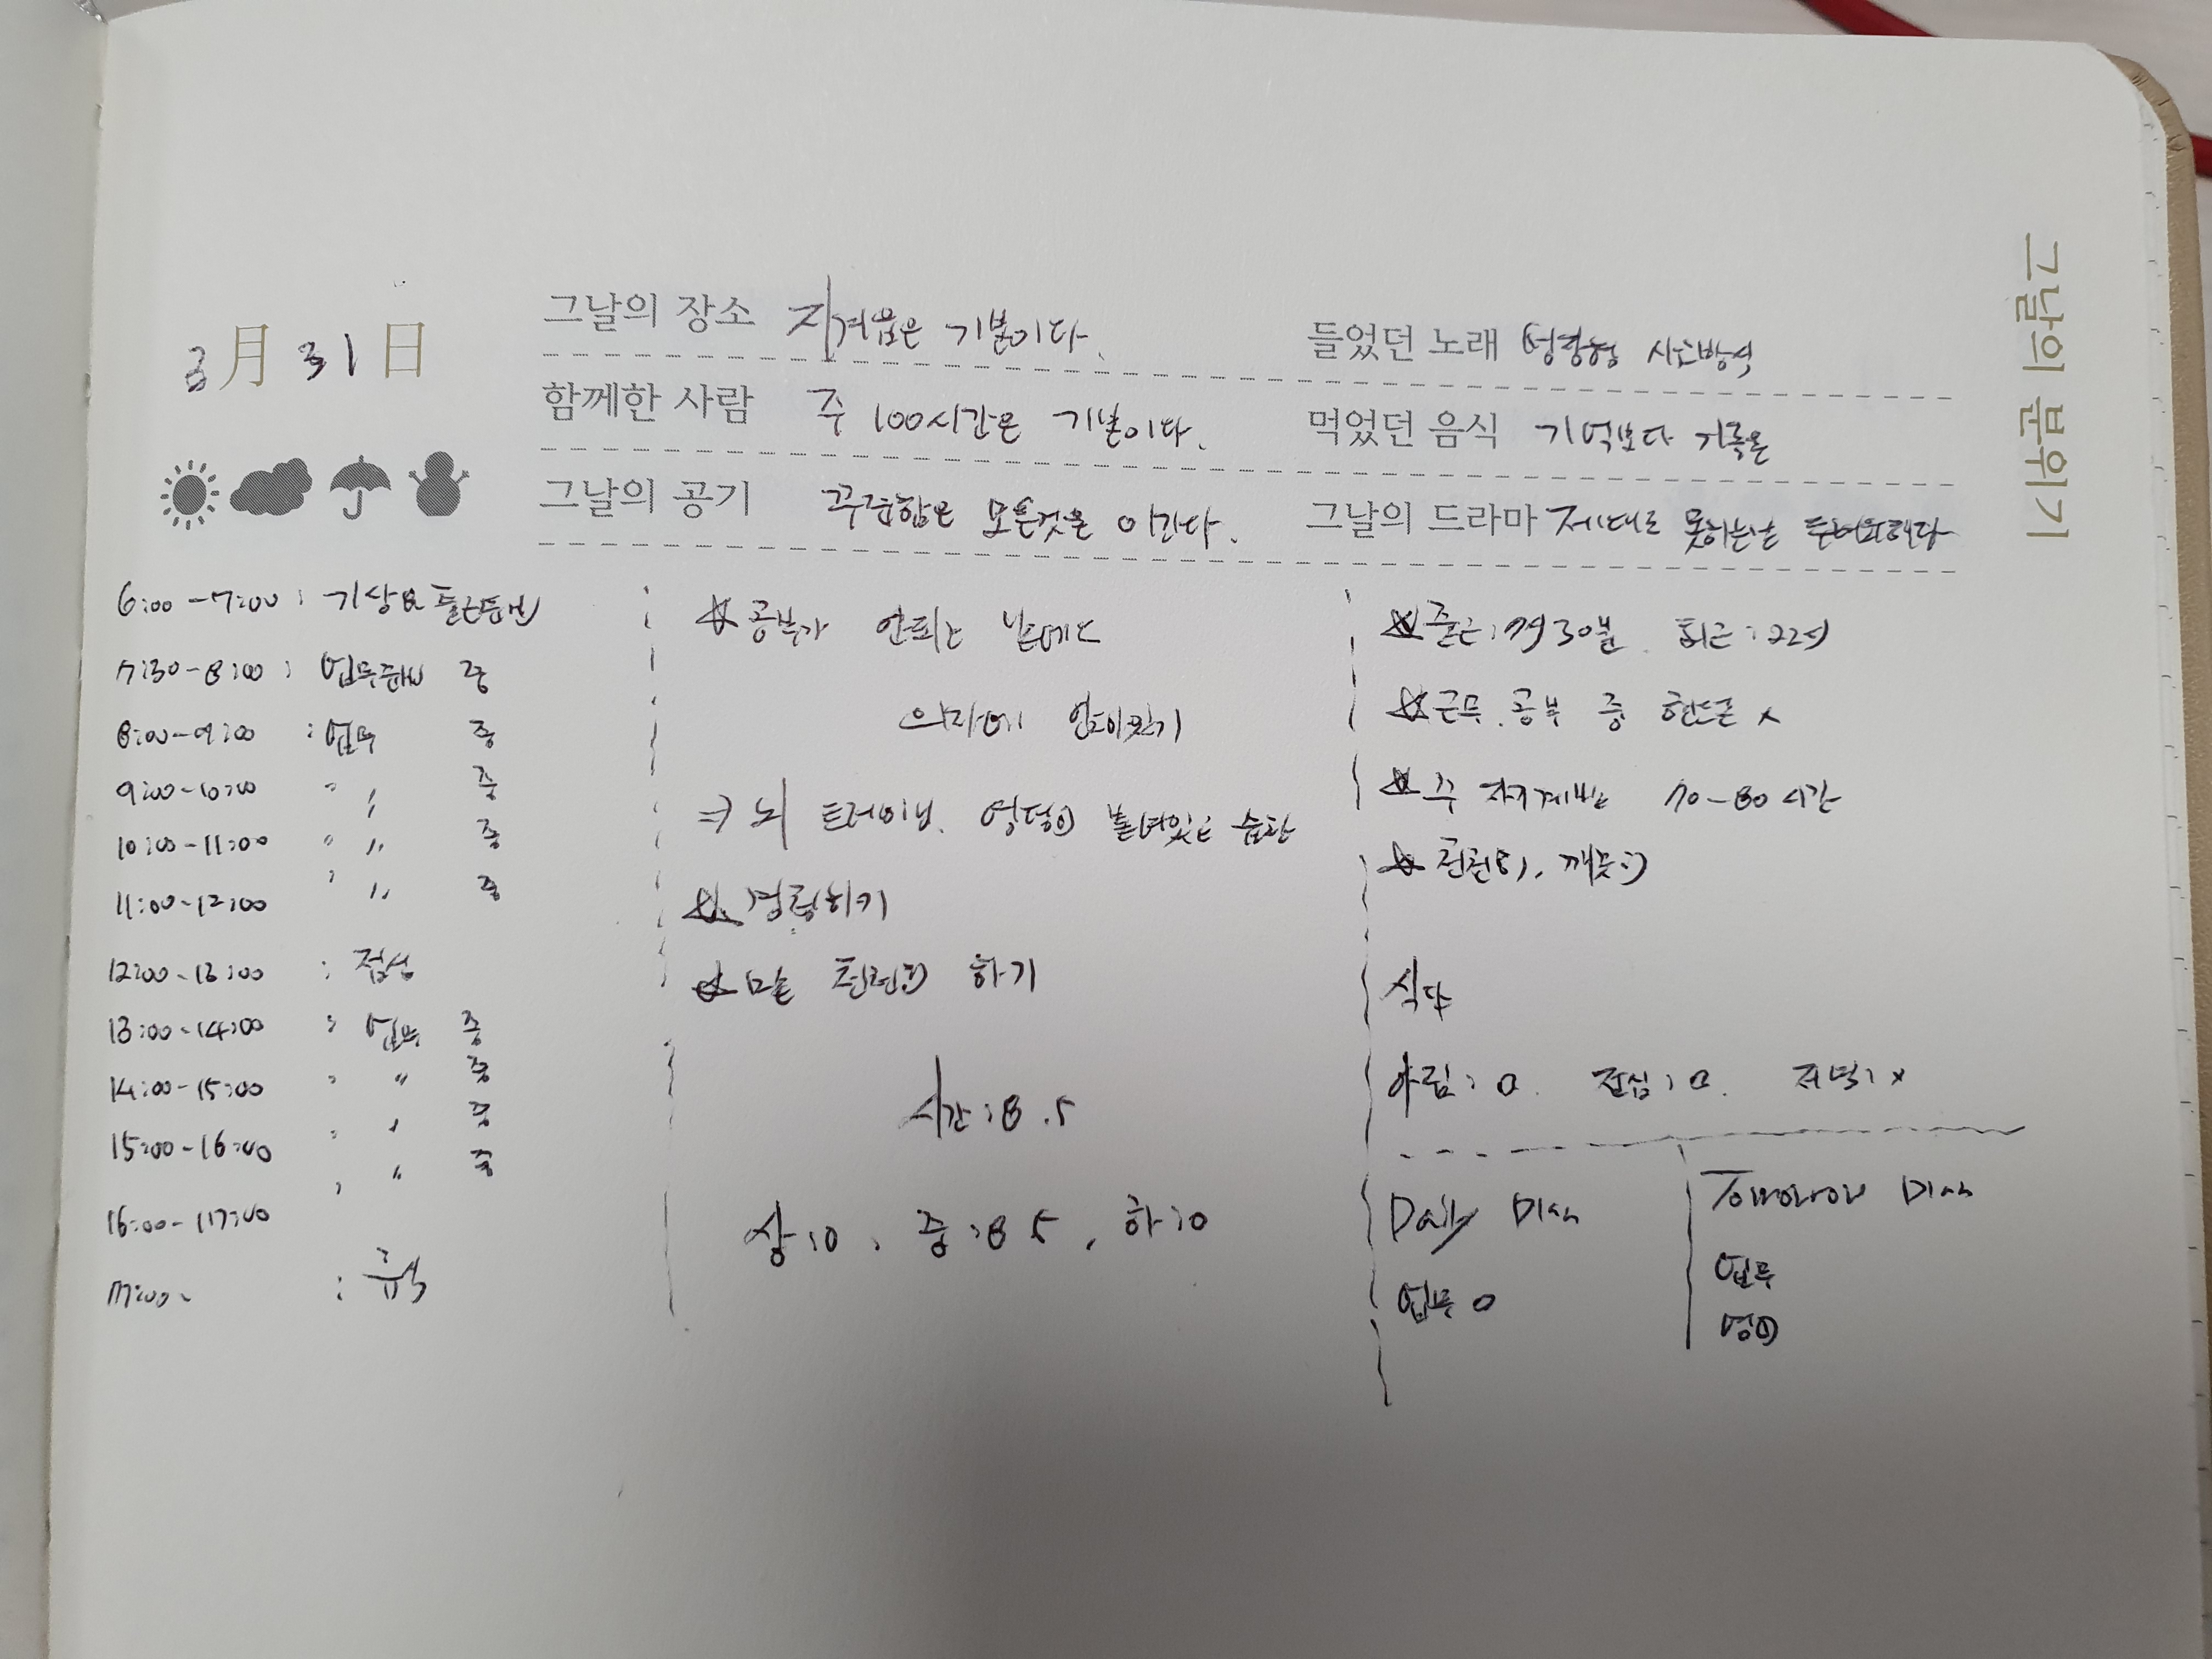 그날의 분위기
3月 31日
그날의 장소 지겨움은 기본이다.
들었던 노래 성장형 사고방식
함께한 사람 주 100시간은 기본이다.
먹었던 음식 기억보다 기록을
그날의 공기 꾸준함은 모든것을 이긴다.
그날의 드라마 제대로 못하는날
6:00-7:00 : 기상 & 출근준비
7:30-8:00 : 업무준비 중
8:00-9:00 : 업무 중
9:00-10:00 " 중
10:00-11:00 " 중
11:00-12:00 " 중
12:00-13:00 : 점심
13:00-14:00 : 업무 중
14:00-15:00 " 중
15:00-16:00 " 중
16:00-17:00 " 중
17:00~ : 휴식
☆ 공부가 안되는 날에도
의자에 앉아있기
⇒ 뇌 트레이닝. 엉덩이 붙여있는 습관
☆ 경청하기
☆ 말 천천히 하기
시간 : 8.5
상 : 0, 중 : 8.5, 하 : 0
☆ 출근 : 7시 30분. 퇴근 : 22시
☆ 근무. 공부 중 핸드폰 x
☆ 주 자기계발 70-80시간
☆ 천천히.
식사
아침 : O. 점심 : O. 저녁 : x
Daily Plan
업무 O
Tomorrow Plan
업무
영어